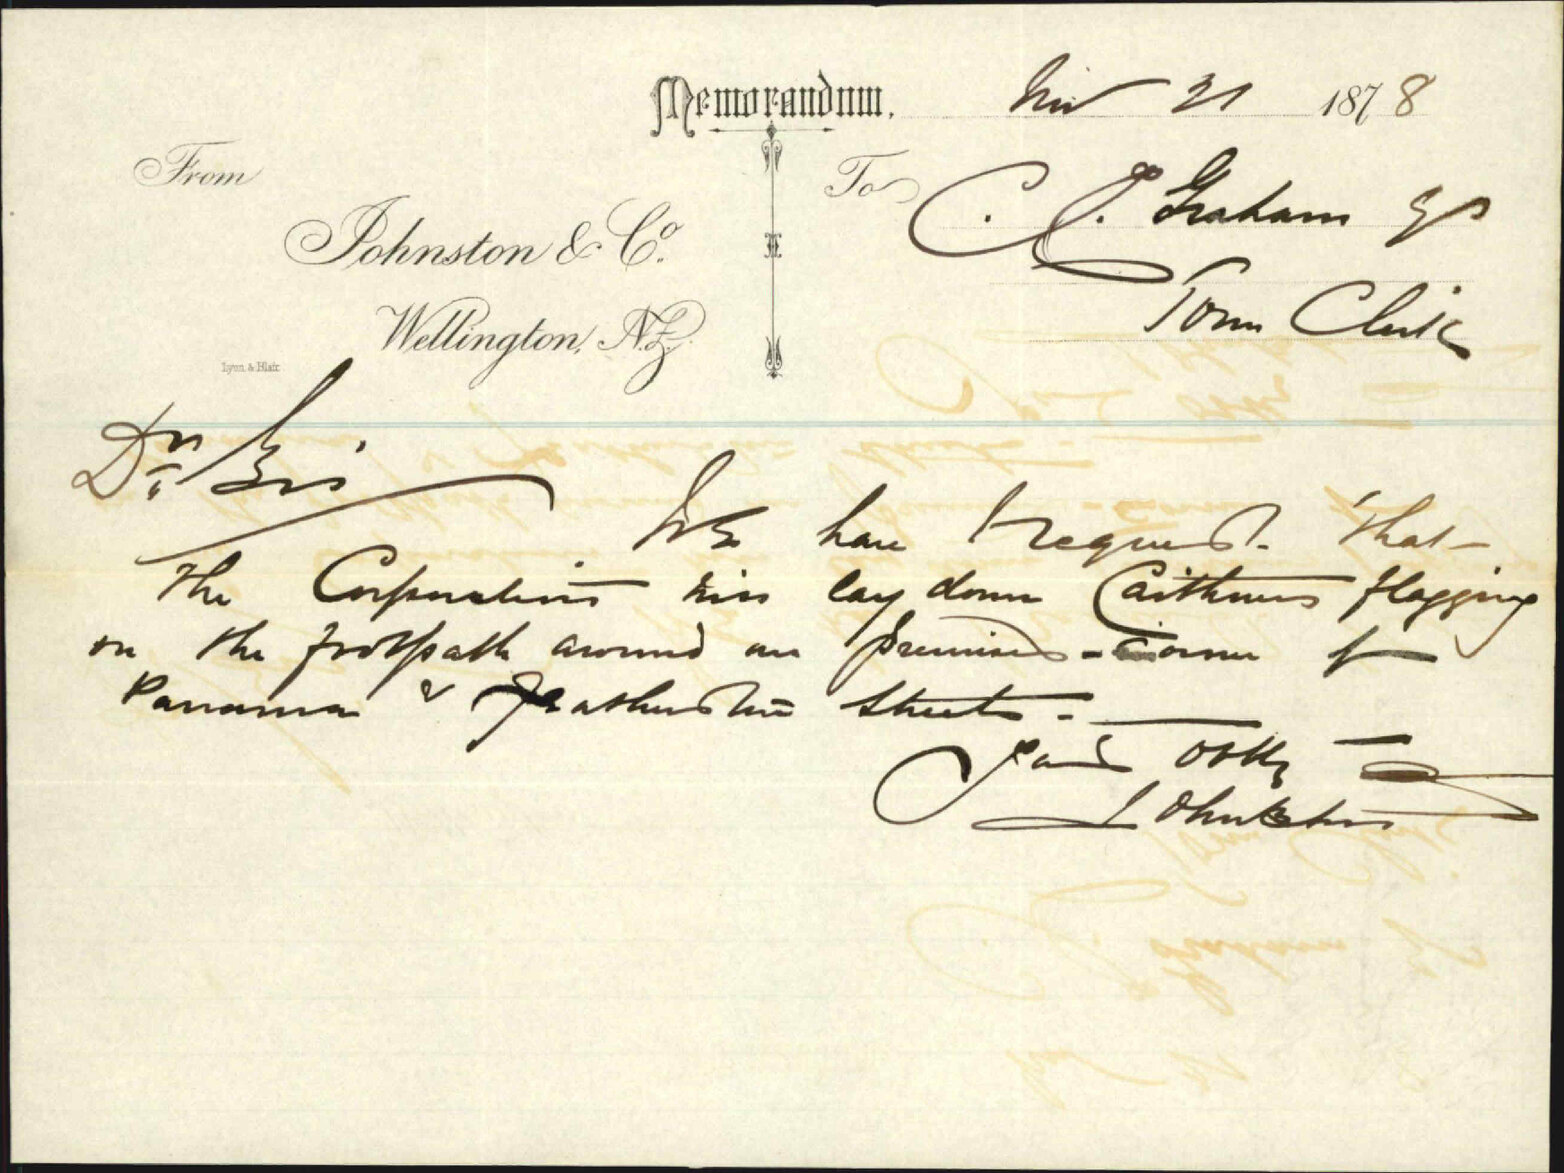 Memorandum. Nov 21 1878
From
To C. C. Graham Esq
Johnston & Co.
Town Clerk
Wellington, N.Z.
Lyon & Blair
Dr Sir,
We have to request that
the Corporation will lay down Caithness flagging
on the footpath around our premises - corner of
Panama & Featherston Streets -
Yours Obtly
Johnston